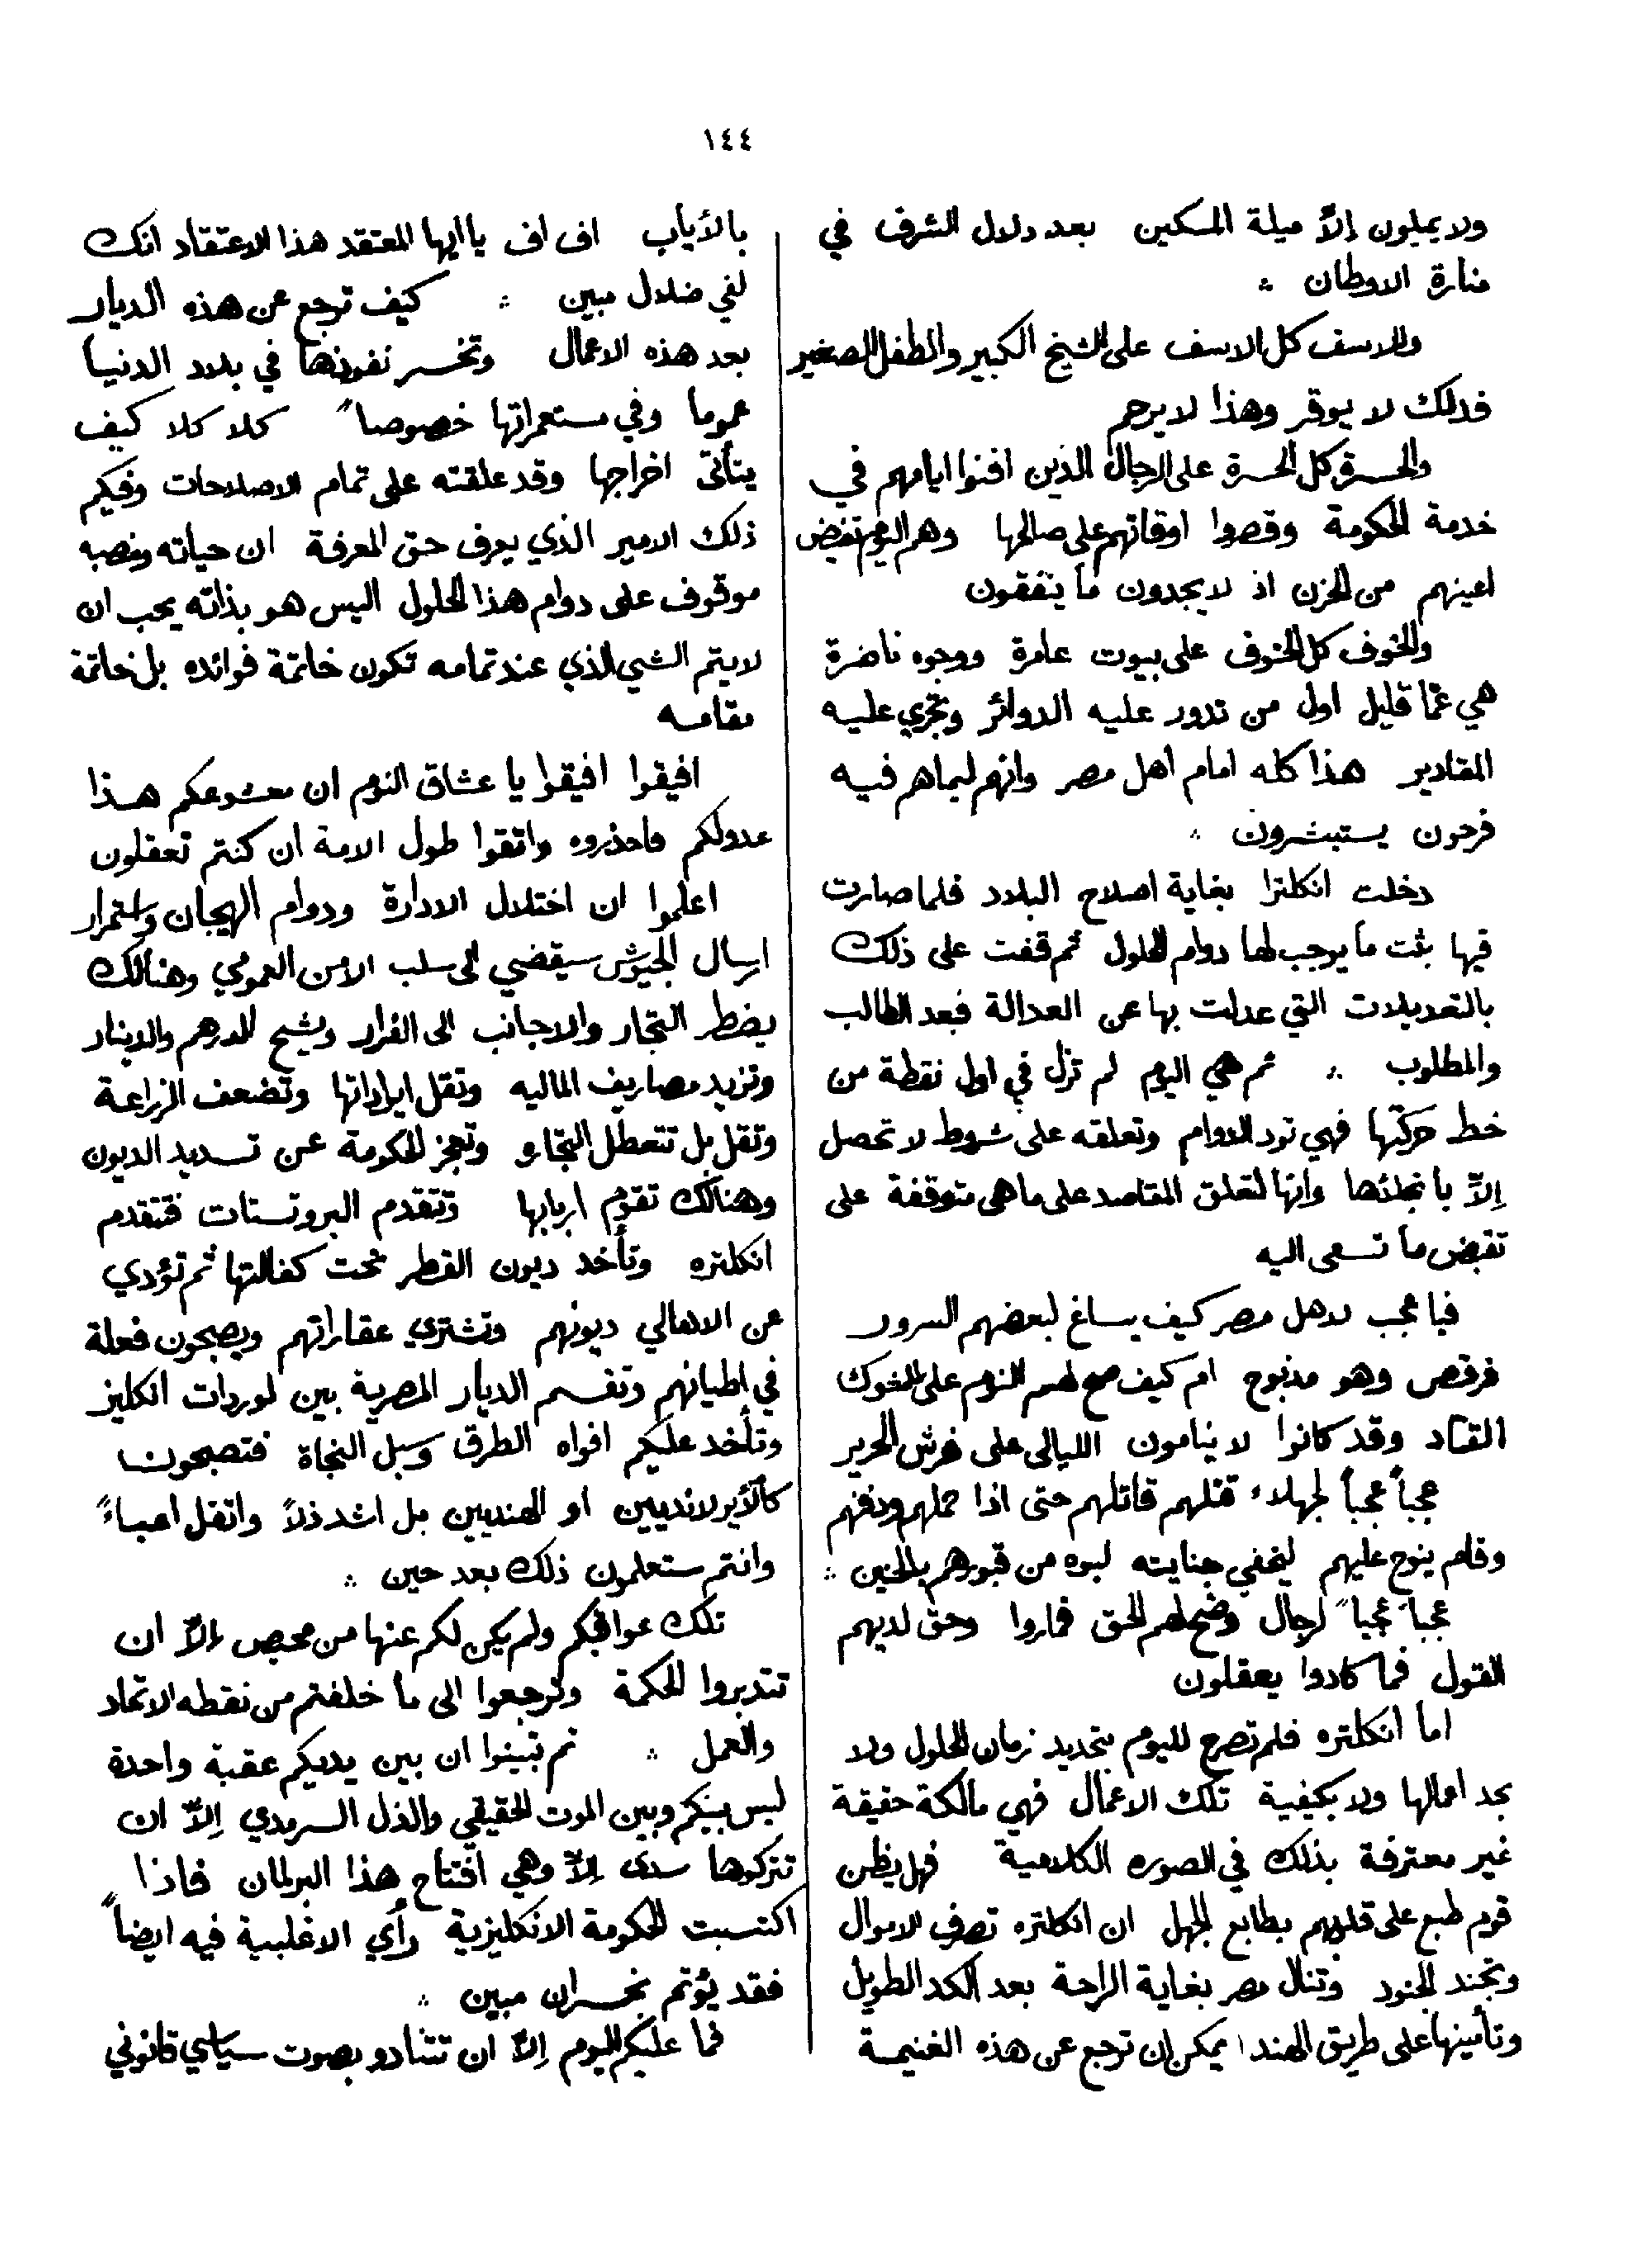 ١٤٤
ولا يميلون إلاّ ميلة المسكين بعد دلال الشرف في
منارة الاوطان ∴
والاسف كل الاسف على الشيخ الكبير والطفل الصغير
فذلك لا يوقر وهذا لا يرحم
والحسرة كل الحسرة على الرجال الذين افنوا ايامهم في
خدمة الحكومة وقصروا اوقاتهم على صالحها وهم اليوم تفيض
اعينهم من الحزن اذ لا يجدون ما ينفقون
والخوف كل الخوف على بيوت عامرة ووجوه ناضرة
هي عمّا قليل اول من تدور عليه الدوائر وتجري عليه
المقادير هذا كله امام اهل مصر وانهم لبما هم فيه
فرحون يستبشرون ∴
دخلت انكلترا بغاية اصلاح البلاد فلما صارت
فيها بثت ما يوجب لها دوام الحلول ثم قفت على ذلك
بالتعديلات التي عدلت بها عن العدالة فبعد الطالب
والمطلوب ∴ ثم هي اليوم لم تزل في اول نقطة من
خط حركتها فهي تود الدوام وتعلقه على شروط لا تحصل
إلاّ بانجلائها وانها لتعلق المقاصد على ما هى متوقفة على
نقيض ما تسعى اليه
فيا عجب لاهل مصر كيف يساغ لبعضهم السرور
فرقص وهو مذبوح ام كيف صح لهم النوم على الشوك
القتاد وقد كانوا لا ينامون الليالى على فرش الحرير
عجباً عجباً لجهلاء قتلهم قاتلهم حتى اذا حملهم ودفنهم
وقام ينوح عليهم ليخفي جنايته لبوه من قبورهم بالحنين ∴
عجباً عجباً لرجال وضح لهم الحق فماروا وحق لديهم
القول فما كادوا يعقلون
اما انكلتره فلم تصرح لليوم بتحديد زمان الحلول ولا
بحد اعمالها ولا بكيفية تلك الاعمال فهي مالكة حقيقة
غير معترفة بذلك في الصوره الكلامية فهل يظن
قوم طبع على قلوبهم بطابع الجهل ان انكلتره تصرف الاموال
وتجند الجنود وتنال مصر بغاية الراحة بعد الكد الطويل
وتأمينها على طريق الهند ايمكن ان ترجع عن هذه الغنيمة
بالأياب اف اف يا ايها المعتقد هذا الاعتقاد انك
لفي ضلال مبين ∴ كيف ترجع عن هذه الديار
بعد هذه الاعمال وتخسر نفوذها في بلاد الدنيا
عموما وفي مستعمراتها خصوصاً كلا كلا كيف
يتأتى اخراجها وقد علقته على تمام الاصلاحات وفيكم
ذلك الامير الذي يعرف حق المعرفة ان حياته ومنصبه
موقوف على دوام هذا الحلول اليس هو بذاته يحب ان
لا يتم الشي الذي عند تمامه تكون خاتمة فوائده بل خاتمة
مقامه
افيقوا افيقوا يا عشاق النوم ان معشوقكم هذا
عدولكم فاحذروه واتقوا طول الامة ان كنتم تعقلون
اعلموا ان اختلال الادارة ودوام الهيجان واستمرار
ارسال الجيوش سيقضي الى سلب الأمن العمومي وهنالك
يضطر التجار والاجانب الى الفرار ويشح الدرهم والدينار
وتزيد مصاريف الماليه وتقل ايراداتها وتضعف الزراعة
وتقل بل تتعطل التجارة وتعجز الحكومة عن تسديد الديون
وهنالك تقوم اربابها وتتقدم البروتستات فتتقدم
انكلتره وتأخذ ديون القطر تحت كفالتها ثم تؤدي
عن الاهالي ديونهم وتشتري عقاراتهم ويصبحون فعلة
في اطيانهم وتقسم الديار المصرية بين لوردات انكليز
وتأخذ عليكم افواه الطرق وسبل النجاة فتصبحون
كالأيرلانديين او الهنديين بل اشد ذلاً واثقل اعباءً
وانتم ستعلمون ذلك بعد حين ∴
تلك عواقبكم ولم يكن لكم عنها من محيص إلاّ ان
تتدبروا الحكمة وترجعوا الى ما خلفتم من نقطه الاتحاد
والعمل ∴ ثم تبينوا ان بين يديكم عقبة واحدة
ليس بينكم وبين الموت الحقيقي والذل السرمدي إلاّ ان
تتركوها سدى إلاّ وهي افتتاح هذا البرلمان فاذا
اكتسبت الحكومة الانكليزية رأي الاغلبية فيه ايضاً
فقد بؤتم بخسران مبين ∴
فما عليكم اليوم إلاّ ان تتنادو بصوت سياسي قانوني